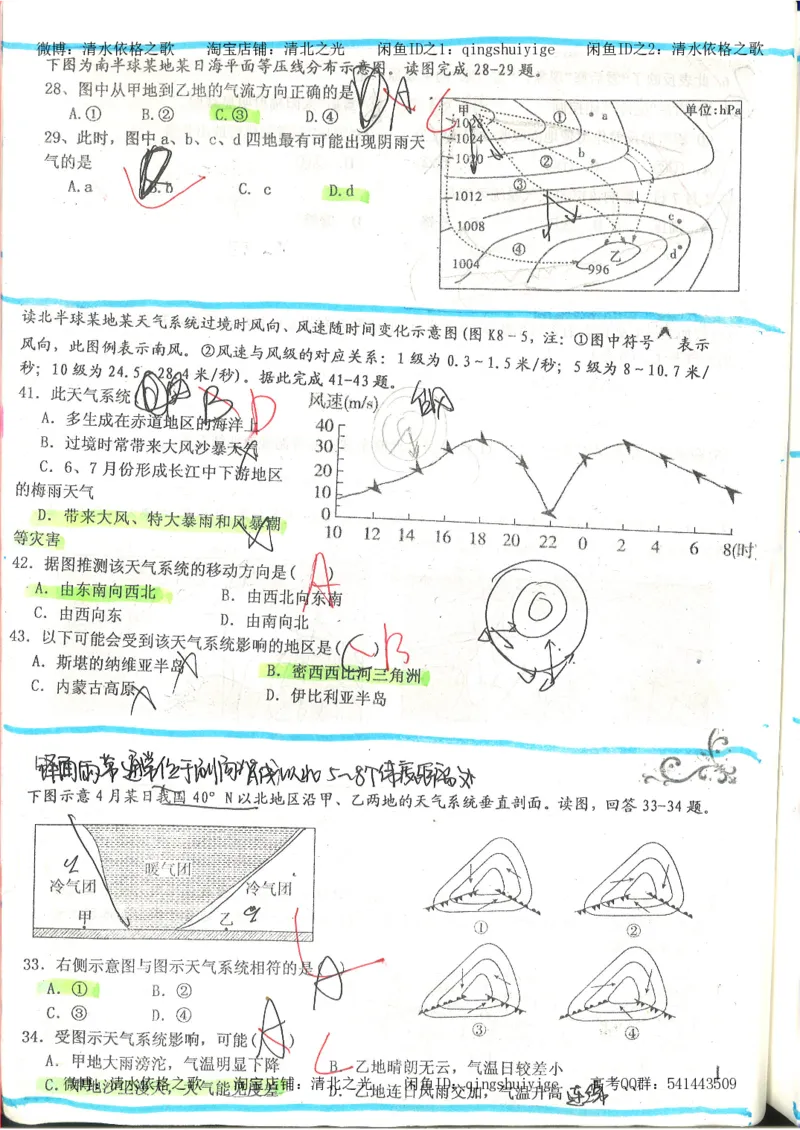 微博：清水依格之歌 淘宝店铺：清北之光 闲鱼ID之1：qingshuiyige 闲鱼ID之2：清水依格之歌
下图为南半球某地某日海平面等压线分布示意图。读图完成 28-29 题。
28、图中从甲地到乙地的气流方向正确的是
A.① B.② C.③ D.④
A
C
29、此时，图中 a、b、c、d 四地最有可能出现阴雨天
气的是
A.a B.b C. c D.d
甲 ① a 单位:hPa
1024
b
1020 ②
③
1012
1008 c
④ 乙 d
1004 996
读北半球某地某天气系统过境时风向、风速随时间变化示意图(图 K8－5，注：①图中符号 表示
风向，此图例表示南风。②风速与风级的对应关系：1 级为 0.3～1.5 米/秒；5 级为 8～10.7 米/
秒；10 级为 24.5～28.4 米/秒)。据此完成 41-43 题。
41．此天气系统
B D
A．多生成在赤道地区的海洋上
B．过境时常带来大风沙暴天气
C．6、7 月份形成长江中下游地区
的梅雨天气
D．带来大风、特大暴雨和风暴潮
等灾害
风速(m/s)
40
30
20
10
0
10 12 14 16 18 20 22 0 2 4 6 8(时)
42．据图推测该天气系统的移动方向是( )
A
A．由东南向西北 B．由西北向东南
C．由西向东 D．由南向北
43．以下可能会受到该天气系统影响的地区是( )
B
A．斯堪的纳维亚半岛 B．密西西比河三角洲
C．内蒙古高原 D．伊比利亚半岛
下图示意 4 月某日我国 40° N 以北地区沿甲、乙两地的天气系统垂直剖面。读图，回答 33-34 题。
暖气团
冷气团 冷气团
甲 乙
① ②
③ ④
33．右侧示意图与图示天气系统相符的是( )
A
A．① B．②
C．③ D．④
34．受图示天气系统影响，可能( )
A
C
A．甲地大雨滂沱，气温明显下降 B．乙地晴朗无云，气温日较差小
C．甲地沙尘漫天，大气能见度差 D．乙地连日风雨交加，气温升高
微博：清水依格之歌 淘宝店铺：清北之光 闲鱼ID：qingshuiyige 高考QQ群：541443509